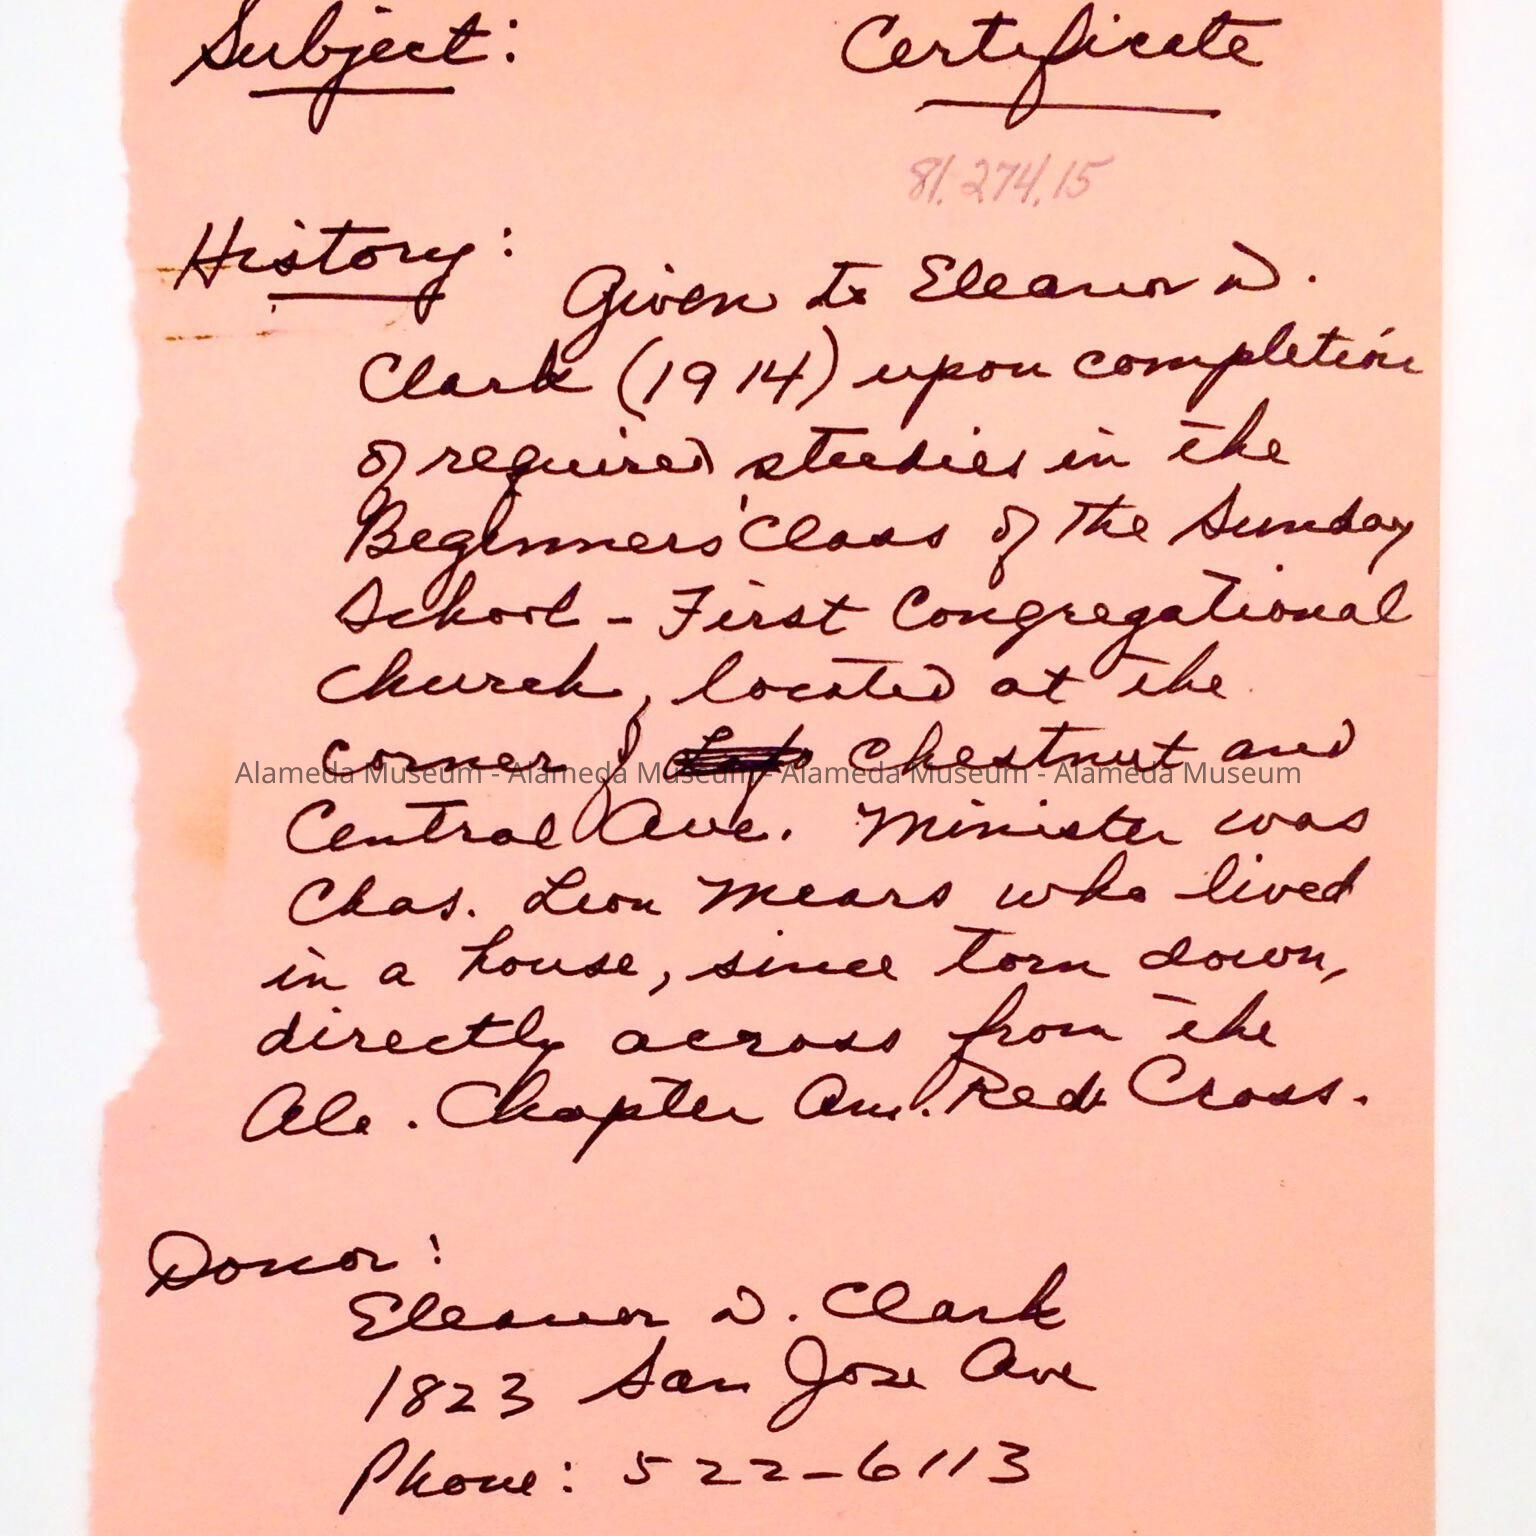 Subject: Certificate
81.274.15
History:
Given to Eleanor D.
Clark (1914) upon completion
of required studies in the
Beginners' Class of the Sunday
School - First Congregational
Church, located at the
corner of Chestnut and
Alameda Museum - Alameda Museum - Alameda Museum - Alameda Museum
Central Ave. Minister was
Chas. Leon Mears who lived
in a house, since torn down,
directly across from the
Ala. Chapter Am. Red Cross.
Donor:
Eleanor D. Clark
1823 San Jose Ave
Phone: 522-6113